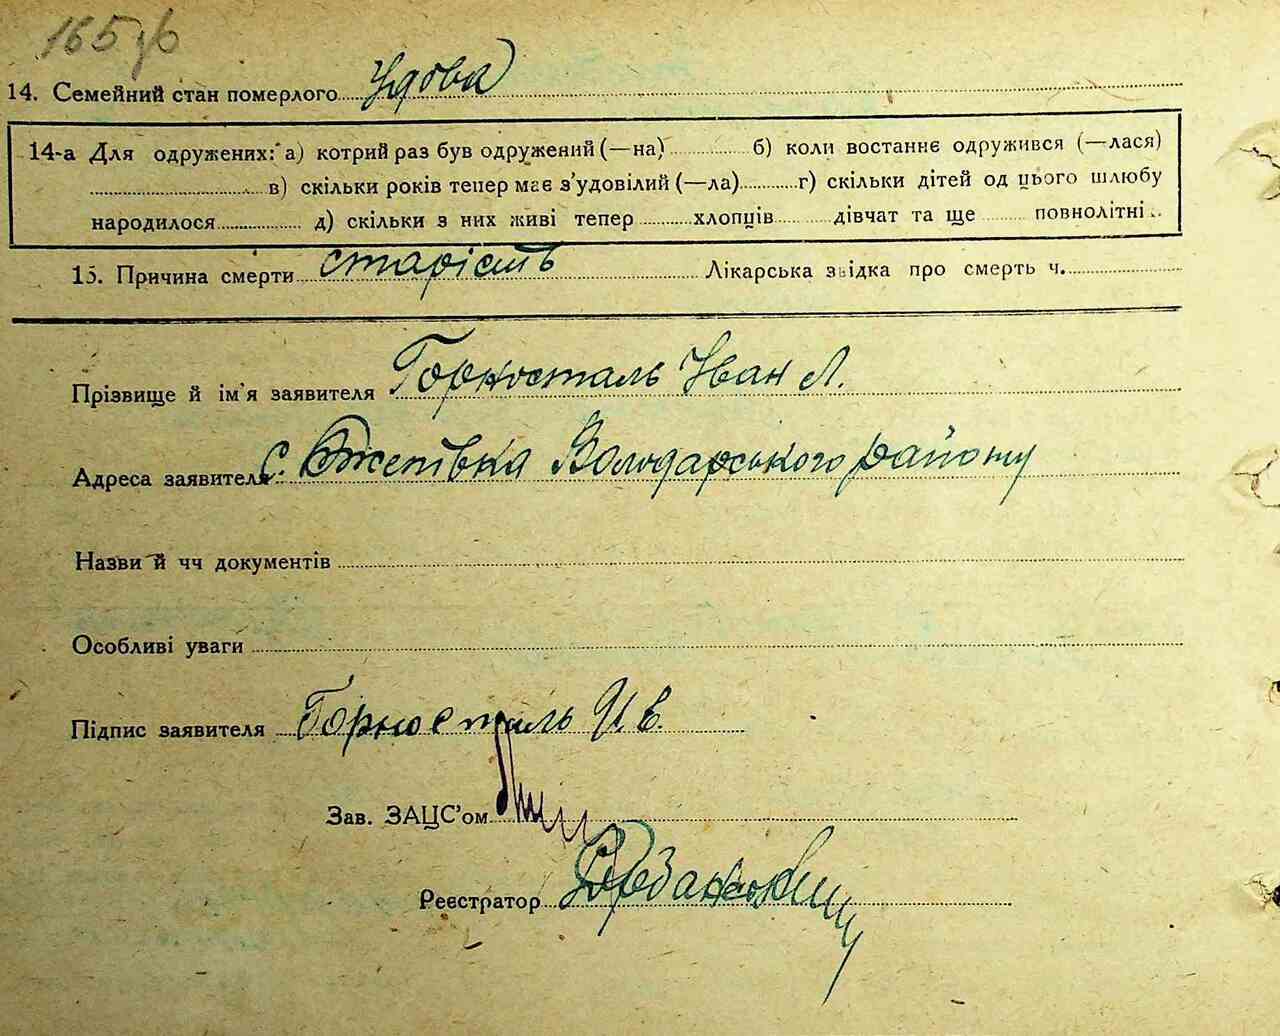 165 зв
14. Семейний стан померлого Удова
14-а Для одружених: а) котрий раз був одружений (—на) б) коли востаннє одружився (—лася)
в) скільки років тепер має з'удовілий (—ла) г) скільки дітей од цього шлюбу
народилося д) скільки з них живі тепер хлопців дівчат та ще повнолітні
15. Причина смерти старість Лікарська звідка про смерть ч.
Прізвище й ім'я заявителя Горносталь Іван Л.
Адреса заявителя с. Володарського району
Назви й чч документів
Особливі уваги
Підпис заявителя Горносталь Ив.
Зав. ЗАЦС'ом
Реєстратор